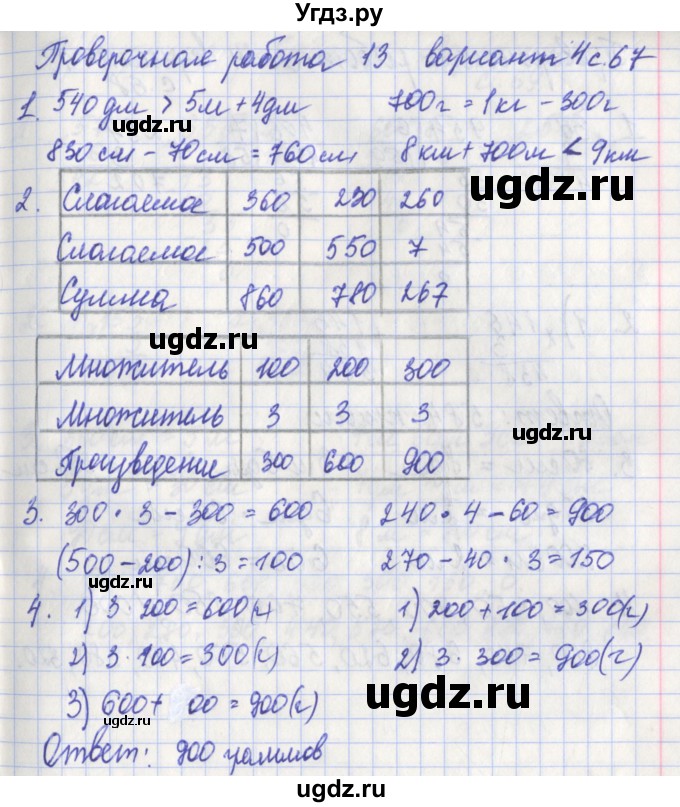 Угдз.ру
Проверочная работа 13 вариант 4 с. 67
1. 540 дм > 5м + 4дм 700г = 1кг - 300г
830 см - 70 см = 760 см 8 км + 700м < 9 км
2. Слагаемое 360 230 260
Слагаемое 500 550 7
Сумма 860 780 267
Множитель 100 200 300
Множитель 3 3 3
Произведение 300 600 900
3. 300 · 3 - 300 = 600 240 · 4 - 60 = 900
(500 - 200) : 3 = 100 270 - 40 · 3 = 150
4. 1) 3 · 200 = 600(г) 1) 200 + 100 = 300(г)
2) 3 · 100 = 300(г) 2) 3 · 300 = 900(г)
3) 600 + 00 = 900(г)
Ответ: 900 граммов
ugdz.ru
ugdz.ru
ugdz.ru
ugdz.ru
ugdz.ru
ugdz.ru
ugdz.ru
ugdz.ru
ugdz.ru